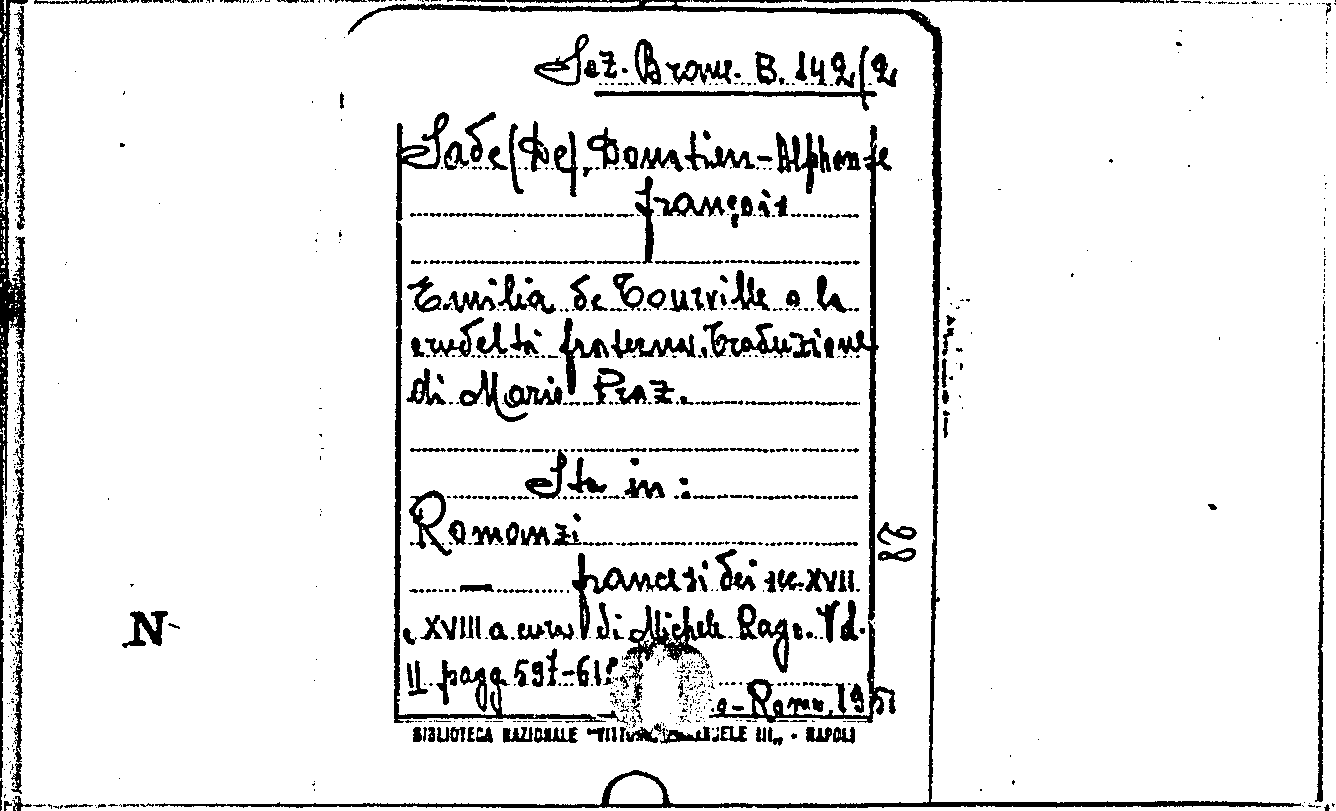 Sez. Branc. B. 142/2
Sade (De), Donatien-Alphonse
François
Emilia de Tourville o la
crudeltà fraterna. Traduzione
di Mario Praz.
Sta in:
Romanzi
— francesi dei sec. XVII
e XVIII a cura di Michele Rago. Vol.
II pagg 597-61
o - Roma, 1951
BIBLIOTECA NAZIONALE "VITTORIO EMANUELE III" - NAPOLI
28
N